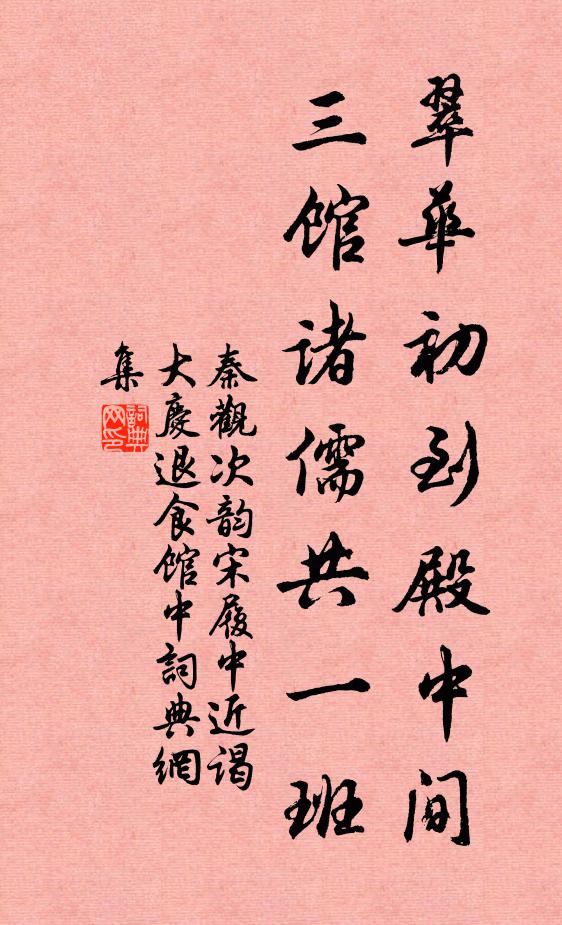 翠華初到殿中間
三館諸儒共一班
秦觀次韵宋履中近谒
大慶退食館中詞典網
集
詞典網印